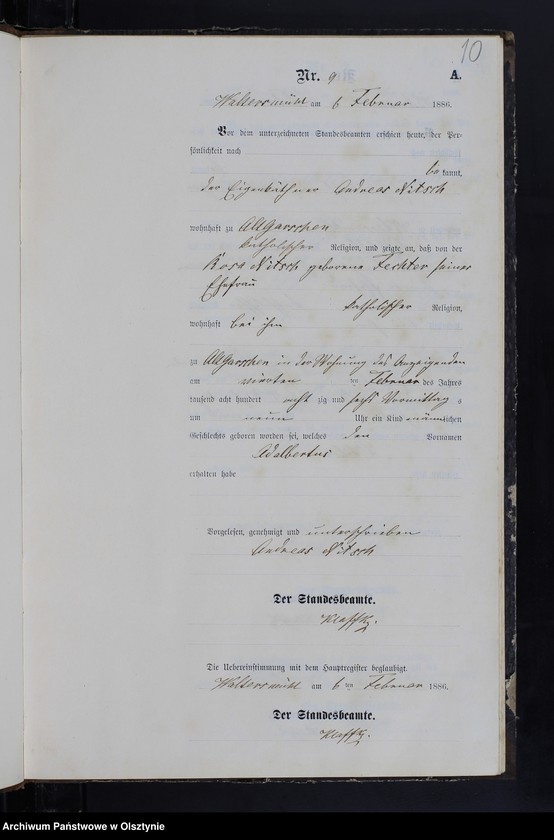 10
Nr. 9 A.
Waltersmühl am 6 Februar 1886.
Vor dem unterzeichneten Standesbeamten erschien heute, der Per-
sönlichkeit nach
be kannt,
der Eigenkäthner Andreas Nitsch
wohnhaft zu Altgarschen
katholischer Religion, und zeigte an, daß von der
Rosa Nitsch geborene Fechter seiner
Ehefrau
katholischer Religion,
wohnhaft bei ihm
zu Altgarschen in der Wohnung des Anzeigenden
am vierten ten Februar des Jahres
tausend acht hundert acht zig und sechs Vormittag s
um neun Uhr ein Kind männlichen
Geschlechts geboren worden sei, welches den Vornamen
Adalbertus
erhalten habe
Vorgelesen, genehmigt und unterschrieben
Andreas Nitsch
Der Standesbeamte.
Die Uebereinstimmung mit dem Hauptregister beglaubigt.
Waltersmühl am 6 ten Februar 1886.
Der Standesbeamte.
Archiwum Państwowe w Olsztynie